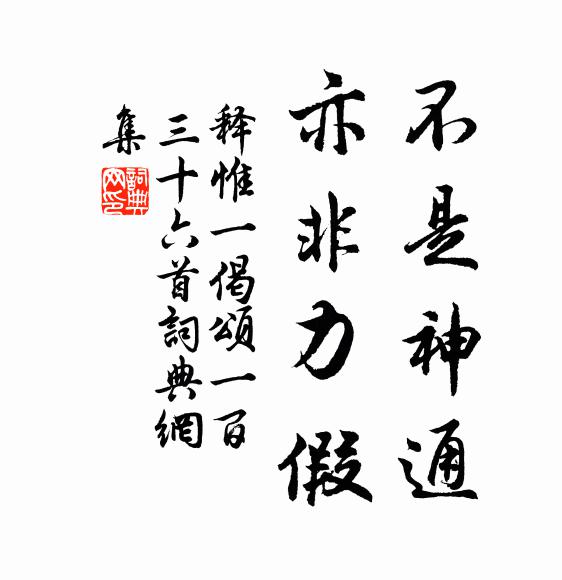 不是神通
亦非力假
释惟一偈頌一百
三十六首詞典網
集
詞典網印